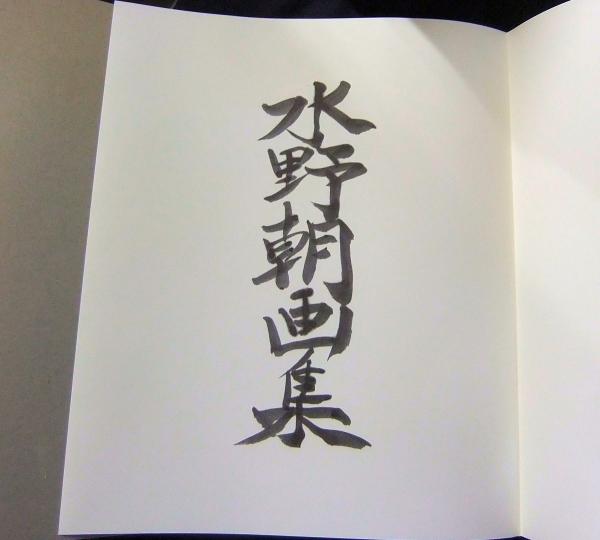 水野朝画集